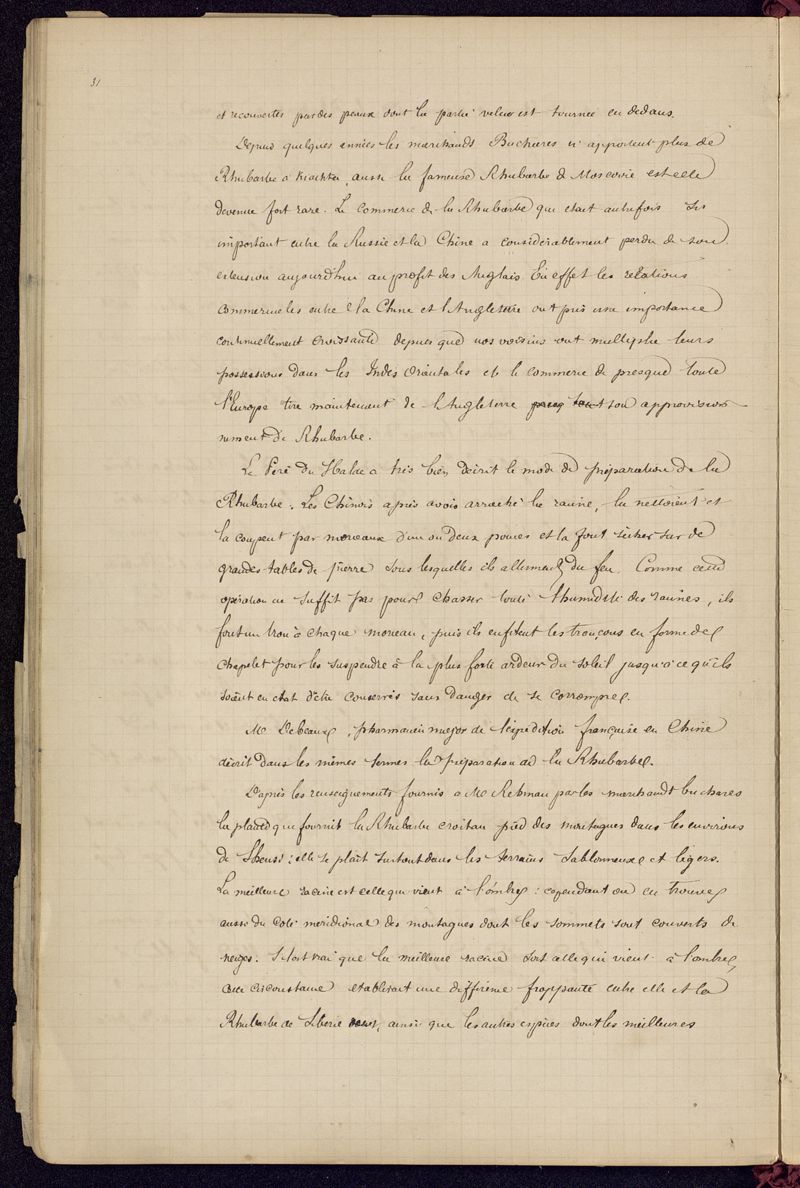 31
et recouvertes par des peaux dont la partie velue est tournée en dedans.
Depuis quelques années les marchands Buchares n'apportent plus de
Rhubarbe à Kiachta, aussi la fameuse Rhubarbe de Moscovie est elle
devenue fort rare. Le commerce de la Rhubarbe qui etait autrefois très
important entre la Russie et la Chine a considérablement perdu de son
extension aujourd'hui au profit des Anglais. En effet les relations
commerciales entre la Chine et l'Angleterre ont pris une importance
continuellement croissante depuis que nos voisins ont multiplié leurs
possessions dans les Indes Orientales et le commerce de presque toute
l'Europe tire maintenant de l'Angleterre son approvision-
nement de Rhubarbe.
Le Père Du Halde a très bien décrit le mode de préparation de la
Rhubarbe. Les Chinois après avoir arraché la racine, la nettoient et
la coupent par morceaux d'un ou deux pouces et la font sécher sur de
grandes tables de pierre sous lesquelles ils allument du feu. Comme cette
opération ne suffit pas pour chasser toute l'humidité des racines, ils
font un trou à chaque morceau, puis ils enfilent les tronçons en forme de
chapelet pour les suspendre à la plus forte ardeur du soleil jusqu'à ce qu'ils
soient en etat d'être conservés sans danger de se corrompre.
Mr Debeaux, pharmacien major de l'expédition française en Chine
décrit dans les mêmes termes la préparation de la Rhubarbe.
D'après les renseignements fournis a Mr Rehman par les marchands buchares
la plante qui fournit la Rhubarbe croit au pied des montagnes dans les environs
de : elle se plaît surtout dans les terrains sablonneux et légers.
La meilleure racine est celle qui vient à l'ombre : cependant on en trouve
aussi du coté méridional des montagnes dont les sommets sont couverts de
neiges. S'il est vrai que la meilleure racine soit celle qui vient à l'ombre,
cette circonstance etablirait une différence frappante entre elle et la
Rhubarbe de Siberie, ainsi que les autres espèces dont les meilleures